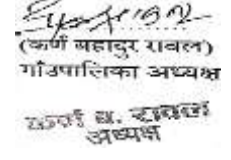 (कर्ण बहादुर रावल)
गाँउपालिका अध्यक्ष
कर्ण ब. रावल
अध्यक्ष